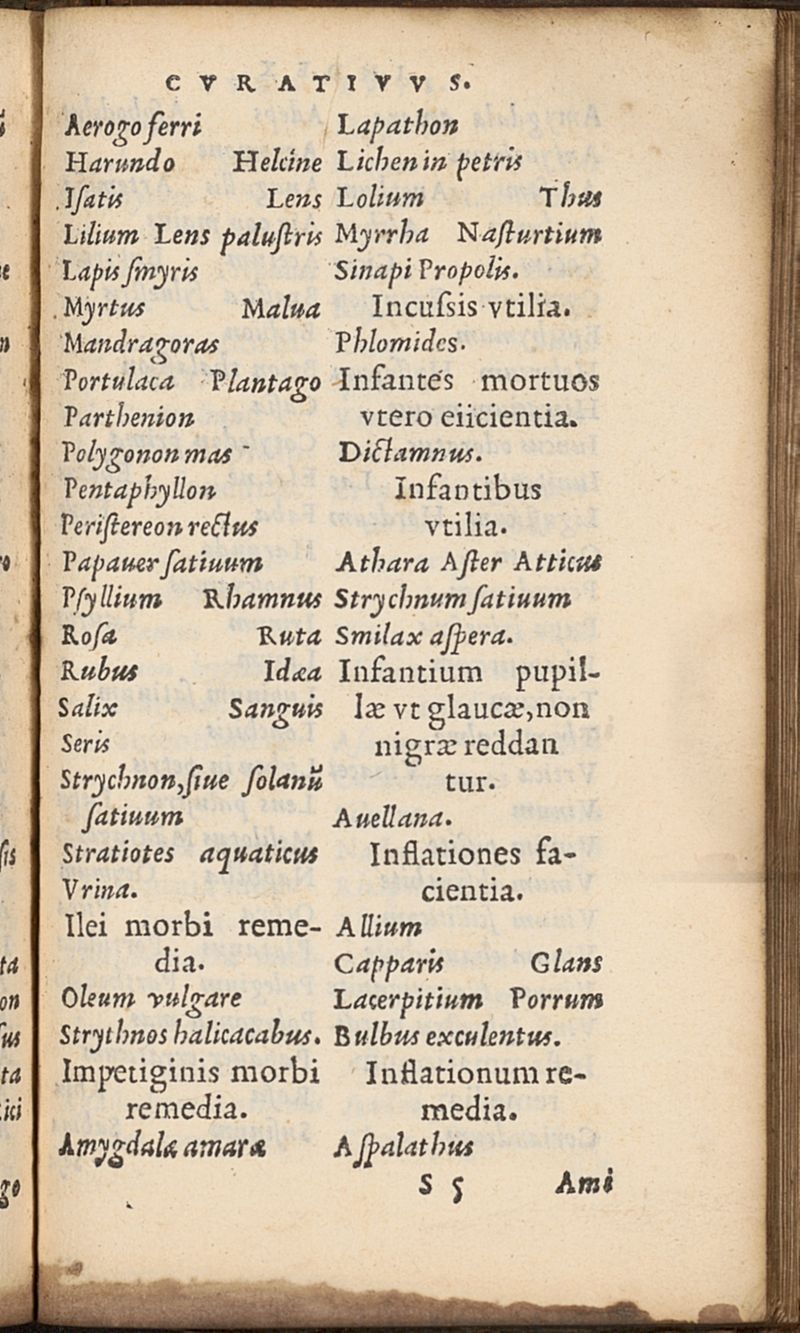 CVRATIVVS.
Aerogo ferri
Harundo Helcine
Iſatis Lens
Lilium Lens paluſtris
Lapis ſmyris
Myrtus Malua
Mandragoras
Portulaca Plantago
Parthenion
Polygonon mas
Pentaphyllon
Periſtereon rectus
Papauer ſatiuum
Pſyllium Rhamnus
Roſa Ruta
Rubus Idæa
Salix Sanguis
Seris
Strychnon, ſiue ſolanū
ſatiuum
Stratiotes aquaticus
Vrina.
Ilei morbi reme-
dia.
Oleum vulgare
Strythnos halicacabus.
Impetiginis morbi
remedia.
Amygdalæ amaræ
Lapathon
Lichen in petris
Lolium Thus
Myrrha Naſturtium
Sinapi Propolis.
Incuſsis vtilia.
Phlomides.
Infantes mortuos
vtero eiicientia.
Dictamnus.
Infantibus
vtilia.
Athara Aſter Atticus
Strychnum ſatiuum
Smilax aſpera.
Infantium pupil-
læ vt glaucæ, non
nigræ reddan
tur.
Auellana.
Inflationes fa-
cientia.
Allium
Capparis Glans
Lacerpitium Porrum
Bulbus exculentus.
Inflationum re-
media.
Aſpalathus
S 5 Ami